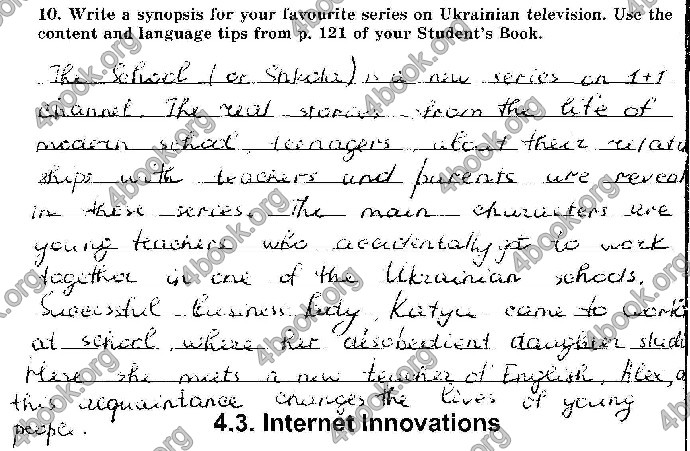 10. Write a synopsis for your favourite series on Ukrainian television. Use the
content and language tips from p. 121 of your Student's Book.
The School (or Shkola) is a new series on 1+1
channel. The real stories from the life of
modern school teenagers, about their relati
ships with teachers and parents are reveal
in these series. The main characters are
young teachers who accidentally get to work
together in one of the Ukrainian schools.
Successful business lady, Katya came to work
at school, where her disobedient daughter studi
Here she meets a new teacher of English, Alex,
this acquaintance changes the lives of young
people.
4.3. Internet Innovations
4book.org